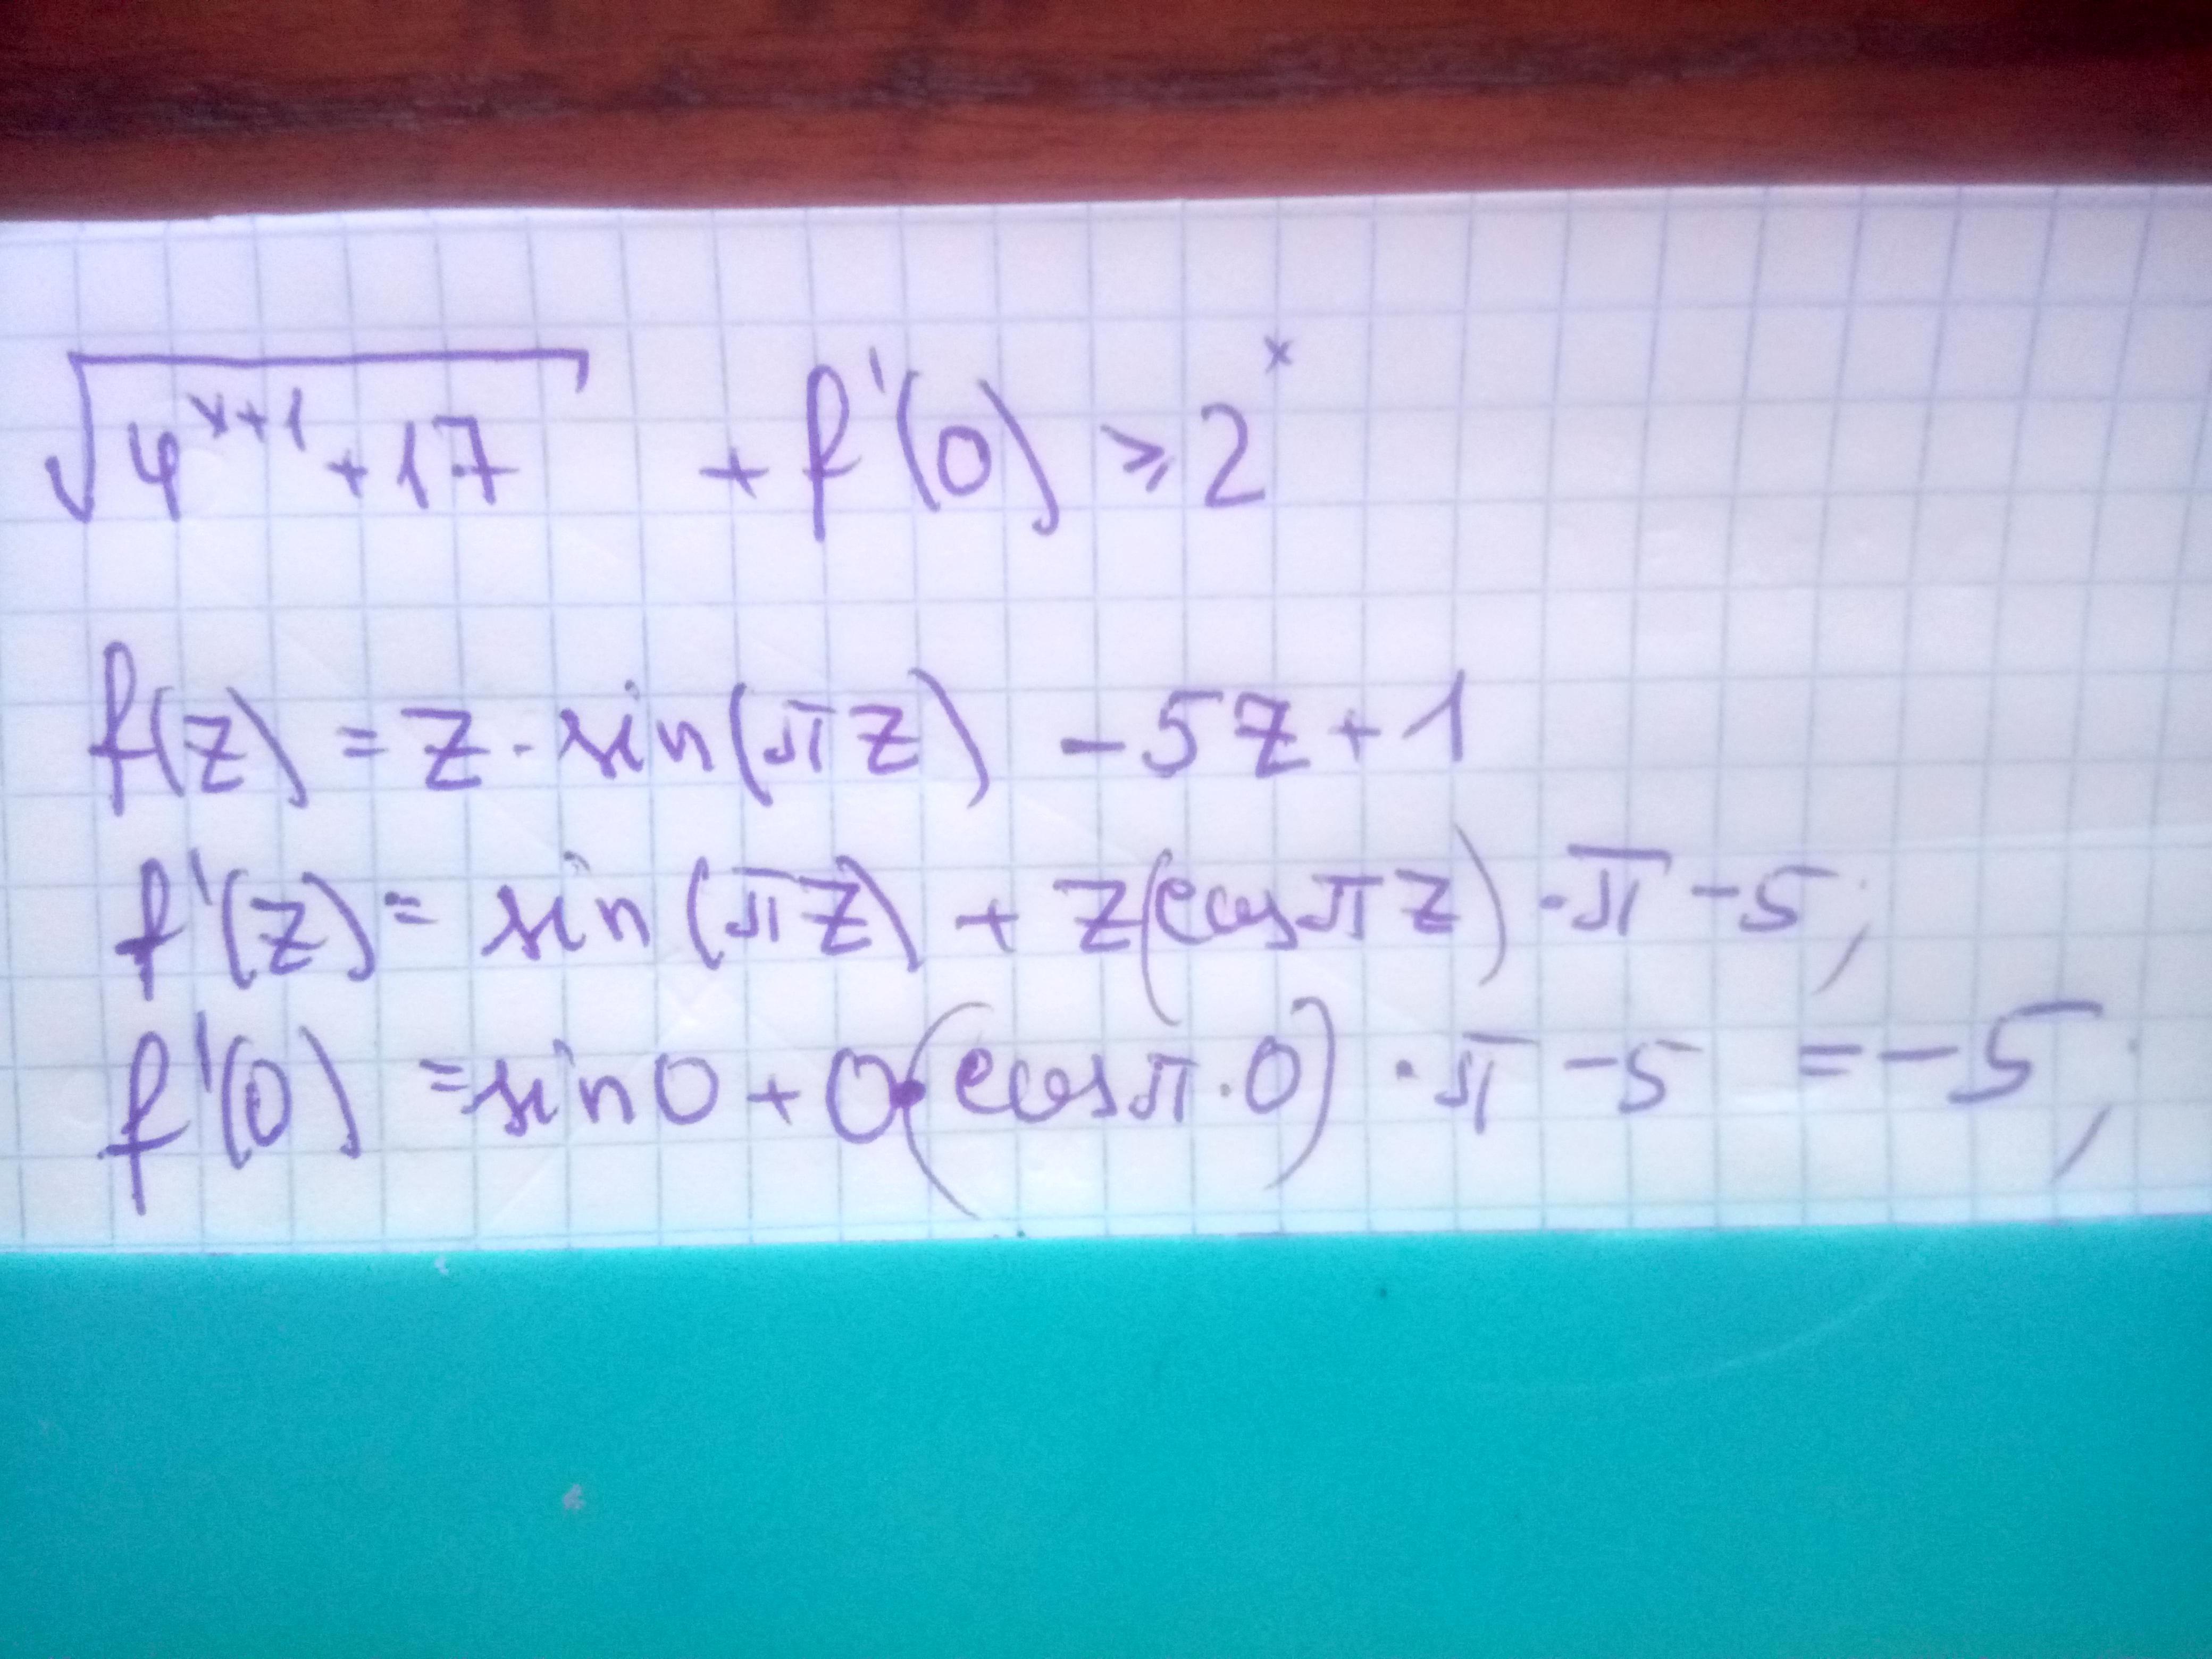 √(4^(x+1) + 17) + f'(0) ⩾ 2^x
f(z) = z · sin(πz) - 5z + 1
f'(z) = sin(πz) + z(cosπz) · π - 5;
f'(0) = sin0 + 0·(cosπ·0) · π - 5 = -5;